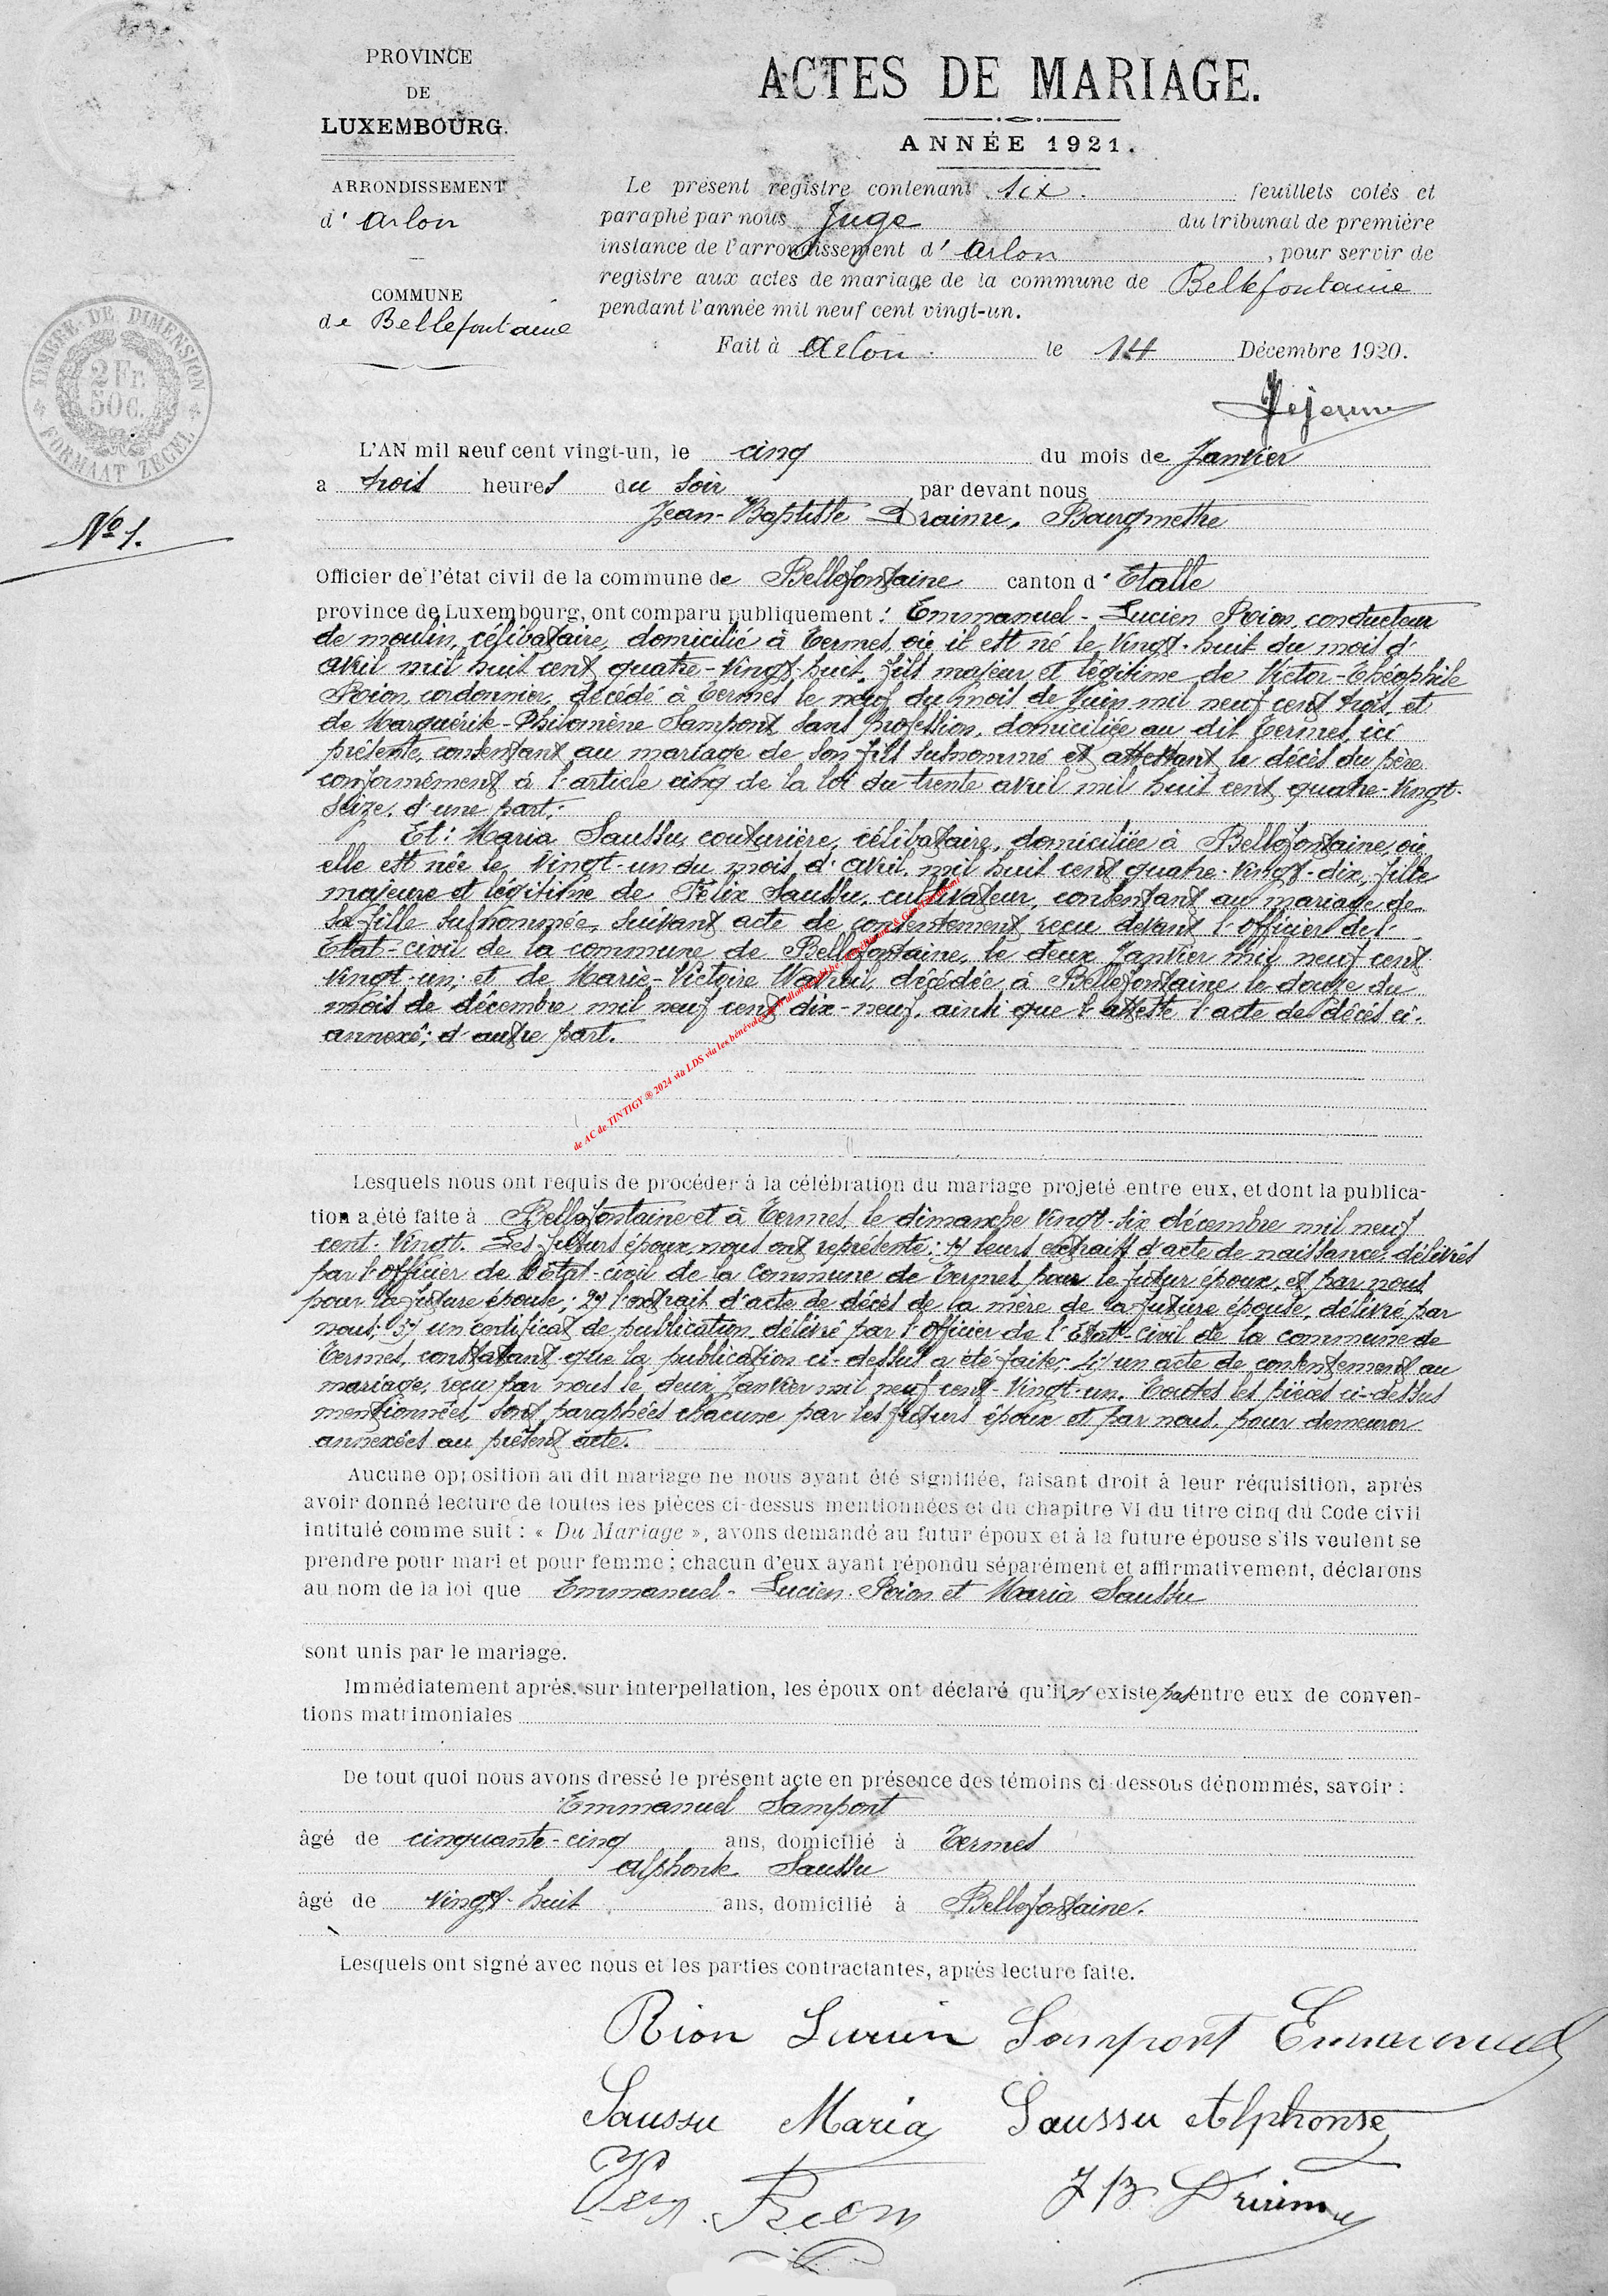 PROVINCE
DE
LUXEMBOURG.
ARRONDISSEMENT
d' Arlon
COMMUNE
de Bellefontaine
TIMBRE DE DIMENSION
2 FR
50 C.
FORMAAT ZEGEL
ACTES DE MARIAGE.
ANNÉE 1921.
Le présent registre contenant six. feuillets cotés et
paraphé par nous Juge du tribunal de première
instance de l'arrondissement d' Arlon , pour servir de
registre aux actes de mariage de la commune de Bellefontaine
pendant l'année mil neuf cent vingt-un.
Fait à Arlon. le 14 Décembre 1920.
L'AN mil neuf cent vingt-un, le cinq du mois de Janvier
a trois heures du soir par devant nous
Nº 1.
Jean-Baptiste Draime, Bourgmestre
Officier de l'état civil de la commune de Bellefontaine canton d' Etalle
province de Luxembourg, ont comparu publiquement : Emmanuel-Lucien Rion, conducteur
de moulin, célibataire, domicilié à Termes, où il est né le vingt-huit du mois d'
avril mil huit cent quatre-vingt-huit, fils majeur et légitime de Victor-Théophile
Rion, cordonnier, décédé à Termes le neuf du mois de Juin mil neuf cent trois, et
de Marguerite-Philomène Sampont, sans profession, domiciliée au dit Termes, ici
présente, consentant au mariage de son fils susnommé et attestant le décès du père
conformément à l'article cinq de la loi du trente avril mil huit cent quatre-vingt-
seize, d'une part;
Et: Maria Saussu, couturière, célibataire, domiciliée à Bellefontaine, où
elle est née le vingt-un du mois d'avril, mil huit cent quatre-vingt-dix, fille
majeure et légitime de Félix Saussu, cultivateur, consentant au mariage de
sa fille susnommée, suivant acte de consentement reçu devant l'officier de l'
Etat-civil de la commune de Bellefontaine, le deux Janvier mil neuf cent
vingt-un; et de Marie-Victoire Watrin, décédée à Bellefontaine le douze du
mois de décembre mil neuf cent dix-neuf, ainsi que l'atteste l'acte de décès ci-
annexé; d'autre part.
de AC de TINTIGY ® 2024 via LDS via les bénévoles
Lesquels nous ont requis de procéder à la célébration du mariage projeté entre eux, et dont la publica-
tion a été faite à Bellefontaine et à Termes, le dimanche vingt-six décembre mil neuf
cent-vingt. Les futurs époux nous ont représenté: 1º/ leurs extraits d'acte de naissance, délivrés
par l'officier de l'état-civil de la commune de Termes, pour le futur époux, et par nous
pour la future épouse; 2º/ l'extrait d'acte de décès de la mère de la future épouse, délivré par
nous; 3º/ un certificat de publication délivré par l'officier de l'Etat-civil de la commune de
Termes, constatant que la publication ci-dessus a été faite; 4º/ un acte de consentement au
mariage, reçu par nous le deux Janvier mil neuf cent-vingt-un. Toutes les pièces ci-dessus
mentionnées, sont paraphées chacune par les futurs époux et par nous, pour demeurer
annexées au présent acte.
Aucune opposition au dit mariage ne nous ayant été signifiée, faisant droit à leur réquisition, après
avoir donné lecture de toutes les pièces ci-dessus mentionnées et du chapitre VI du titre cinq du Code civil
intitulé comme suit : « Du Mariage », avons demandé au futur époux et à la future épouse s'ils veulent se
prendre pour mari et pour femme ; chacun d'eux ayant répondu séparément et affirmativement, déclarons
au nom de la loi que Emmanuel-Lucien Rion et Maria Saussu
sont unis par le mariage.
Immédiatement après, sur interpellation, les époux ont déclaré qu'il n'existe pas entre eux de conven-
tions matrimoniales
De tout quoi nous avons dressé le présent acte en présence des témoins ci-dessous dénommés, savoir :
Emmanuel Sampont
âgé de cinquante-cinq ans, domicilié à Termes
Alphonse Saussu
âgé de vingt-huit ans, domicilié à Bellefontaine.
Lesquels ont signé avec nous et les parties contractantes, après lecture faite.
Rion Lucien Sampont Emmanuel
Saussu Maria Saussu Alphonse
J B Draime